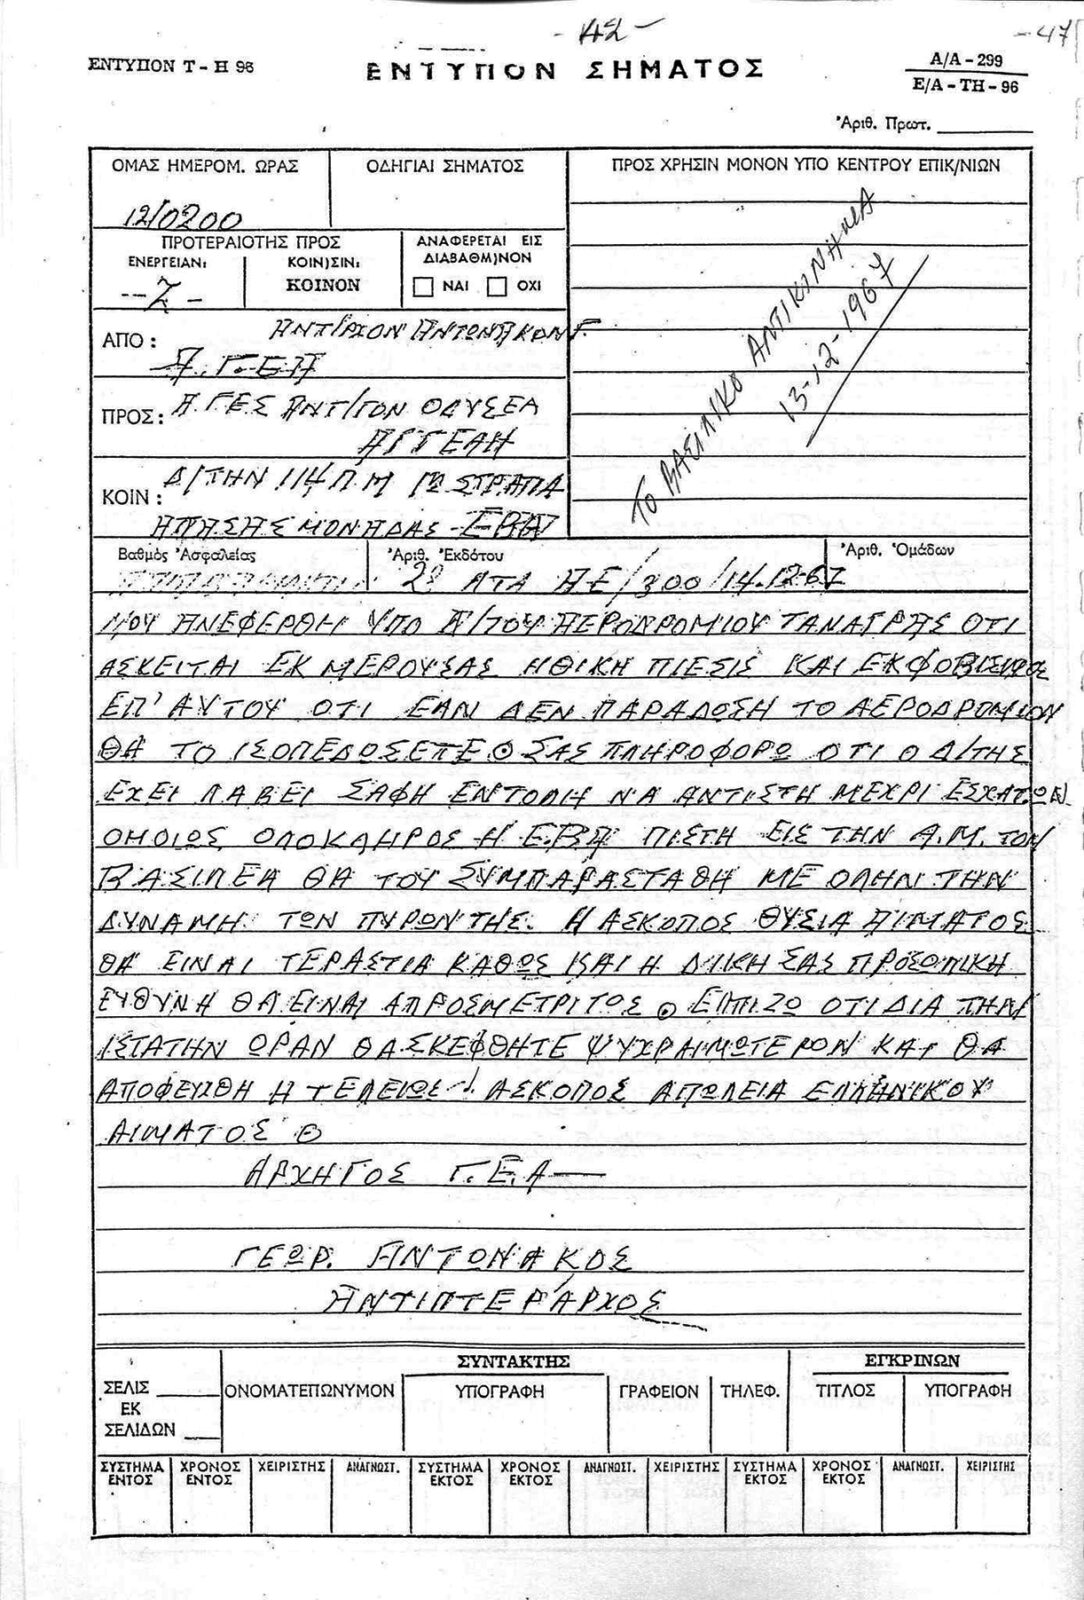 - 42 -
- 47
ΕΝΤΥΠΟΝ Τ - Η 96
ΕΝΤΥΠΟΝ ΣΗΜΑΤΟΣ
Α/Α - 299
Ε/Α - ΤΗ - 96
Ἀριθ. Πρωτ.
ΟΜΑΣ ΗΜΕΡΟΜ. ΩΡΑΣ
ΟΔΗΓΙΑΙ ΣΗΜΑΤΟΣ
ΠΡΟΣ ΧΡΗΣΙΝ ΜΟΝΟΝ ΥΠΟ ΚΕΝΤΡΟΥ ΕΠΙΚ/ΝΙΩΝ
12/0200
ΠΡΟΤΕΡΑΙΟΤΗΣ ΠΡΟΣ
ΕΝΕΡΓΕΙΑΝ:
ΚΟΙΝ)ΣΙΝ:
ΚΟΙΝΟΝ
- Z -
ΑΝΑΦΕΡΕΤΑΙ ΕΙΣ
ΔΙΑΒΑΘΜ)ΝΟΝ
ΝΑΙ ΟΧΙ
ΤΟ ΒΑΣΙΛΙΚΟ ΑΝΤΙΚΙΝΗΜΑ
13-12-1967
ΑΠΟ: ΑΝΤ/ΡΧΟΝ ΑΝΤΩΝΑΚΟΝ Γ.
Α.Γ.Ε.Α
ΠΡΟΣ: Α.ΓΕΣ ΑΝΤ/ΓΟΝ ΟΔΥΣΕΑ
ΑΓΓΕΛΗ
ΚΟΙΝ: Δ/ΤΗΝ 114 Π.Μ ΣΤΡΑΠΑ
ΑΠΑΣΗΣ ΜΟΝΑΔΑΣ - ΕΒΑ
Βαθμὸς Ἀσφαλείας
Ἀριθ. Ἐκδότου
Ἀριθ. Ὁμάδων
2α ΑΤΑ ΑΕ/300/14.12.67
ΜΟΥ ΑΝΕΦΕΡΘΗ ΥΠΟ Δ/ΤΟΥ ΑΕΡΟΔΡΟΜΙΟΥ ΤΑΝΑΓΡΑΣ ΟΤΙ
ΑΣΚΕΙΤΑΙ ΕΚ ΜΕΡΟΥΣ ΣΑΣ ΗΘΙΚΗ ΠΙΕΣΙΣ ΚΑΙ ΕΚΦΟΒΙΣΜΟΣ
ΕΠ' ΑΥΤΟΥ ΟΤΙ ΕΑΝ ΔΕΝ ΠΑΡΑΔΟΣΗ ΤΟ ΑΕΡΟΔΡΟΜΙΟΝ
ΘΑ ΤΟ ΙΣΟΠΕΔΟΣΕΤΕ ⊙ ΣΑΣ ΠΛΗΡΟΦΟΡΩ ΟΤΙ Ο Δ/ΤΗΣ
ΕΧΕΙ ΛΑΒΕΙ ΣΑΦΗ ΕΝΤΟΛΗ ΝΑ ΑΝΤΙΣΤΗ ΜΕΧΡΙ ΕΣΧΑΤΩΝ
ΟΜΟΙΩΣ ΟΛΟΚΛΗΡΟΣ Η Ε.ΒΑ ΠΙΣΤΗ ΕΙΣ ΤΗΝ Α.Μ. ΤΟΝ
ΒΑΣΙΛΕΑ ΘΑ ΤΟΥ ΣΥΜΠΑΡΑΣΤΑΘΗ ΜΕ ΟΛΗΝ ΤΗΝ
ΔΥΝΑΜΗ ΤΩΝ ΠΥΡΩΝ ΤΗΣ. Η ΑΣΚΟΠΟΣ ΘΥΣΙΑ ΑΙΜΑΤΟΣ
ΘΑ ΕΙΝΑΙ ΤΕΡΑΣΤΙΑ ΚΑΘΩΣ ΚΑΙ Η ΔΙΚΗ ΣΑΣ ΠΡΟΣΩΠΙΚΗ
ΕΥΘΥΝΗ ΘΑ ΕΙΝΑΙ ΑΠΡΟΣΜΕΤΡΙΤΟΣ ⊙ ΕΛΠΙΖΩ ΟΤΙ ΔΙΑ ΤΗΝ
ΙΣΤΑΤΗΝ ΩΡΑΝ ΘΑ ΣΚΕΦΘΗΤΕ ΨΥΧΡΑΙΜΩΤΕΡΟΝ ΚΑΙ ΘΑ
ΑΠΟΦΕΥΧΘΗ Η ΤΕΛΕΙΩΣ ΑΣΚΟΠΟΣ ΑΠΩΛΕΙΑ ΕΛΛΗΝΙΚΟΥ
ΑΙΜΑΤΟΣ ⊙
ΑΡΧΗΓΟΣ Γ.Ε.Α —
ΓΕΩΡ. ΑΝΤΩΝΑΚΟΣ
ΑΝΤΙΠΤΕΡΑΡΧΟΣ
ΣΥΝΤΑΚΤΗΣ
ΕΓΚΡΙΝΩΝ
ΣΕΛΙΣ
ΕΚ
ΣΕΛΙΔΩΝ
ΟΝΟΜΑΤΕΠΩΝΥΜΟΝ
ΥΠΟΓΡΑΦΗ
ΓΡΑΦΕΙΟΝ
ΤΗΛΕΦ.
ΤΙΤΛΟΣ
ΥΠΟΓΡΑΦΗ
ΣΥΣΤΗΜΑ ΕΝΤΟΣ
ΧΡΟΝΟΣ ΕΝΤΟΣ
ΧΕΙΡΙΣΤΗΣ
ΑΝΑΓΝΩΣΤ.
ΣΥΣΤΗΜΑ ΕΚΤΟΣ
ΧΡΟΝΟΣ ΕΚΤΟΣ
ΑΝΑΓΝΩΣΤ.
ΧΕΙΡΙΣΤΗΣ
ΣΥΣΤΗΜΑ ΕΚΤΟΣ
ΧΡΟΝΟΣ ΕΚΤΟΣ
ΑΝΑΓΝΩΣΤ.
ΧΕΙΡΙΣΤΗΣ